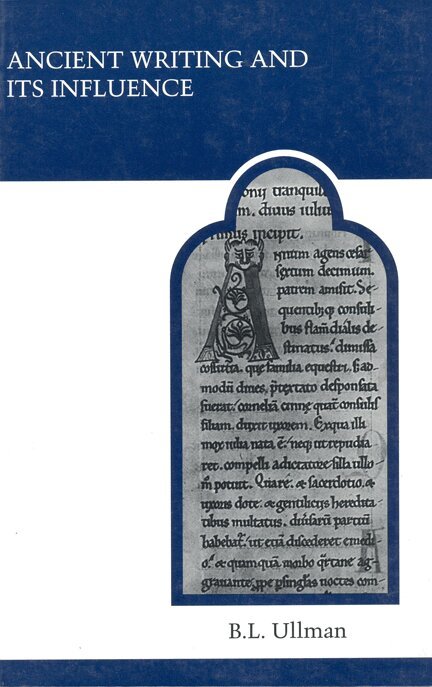 ANCIENT WRITING AND
ITS INFLUENCE
onij tranquil
m. diuus iuliu
primus incipit.
Annum agens cesar
sextum decimum.
patrem amisit. Se-
quentibꝫ consuli-
bus flam dialis de-
stinatus. dimissa
cossutia. que familia equestri. sꝫ ad-
modū diues. p̄textato desponsata
fuerat. corneliā cinne quat consulis
filiam. duxit uxorem. Ex qua illi
mox iulia nata ē. neqꝫ ut repudia-
ret. compelli a dictatore silla ullo
m potuit. Quare. & sacerdotio. &
uxoris dote. & gentilicijs heredita-
tibus multatus. diuersarū partiū
habebat. ut etiā discederet e medi-
o. & quamquā morbo qrtane ag-
grauante. ppe p singlas noctes com-
B.L. Ullman